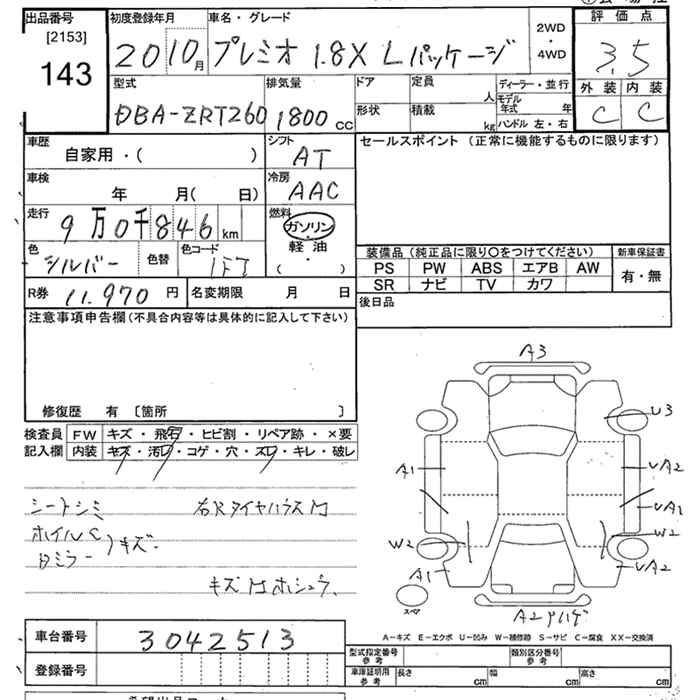 出品番号
[2153]
143
初度登録年月
2010月
車名・グレード
プレミオ 1.8X Lパッケージ
2WD
・
4WD
評価点
3.5
外装 内装
C C
型式
DBA-ZRT260
排気量
1800 CC
ドア
定員
人
形状
積載
kg
ディーラー・並行
モデル年式 年
ハンドル 左・右
車歴
自家用・( )
シフト
AT
車検
年 月( 日)
冷房
AAC
走行
9万0千846km
燃料
ガソリン
・
軽油
( ・ )
色
シルバー
色替
色コード
1F7
R券 11.970 円
名変期限 月 日
セールスポイント (正常に機能するものに限ります)
装備品 (純正品に限り○をつけてください)
新車保証書
PS PW ABS エアB AW
SR ナビ TV カワ
有・無
後日品
注意事項申告欄 (不具合内容等は具体的に記入して下さい)
修復歴 有 〔箇所 〕
検査員
記入欄
FW キズ・飛石・ヒビ割・リペア跡・×要
内装 キズ・汚レ・コゲ・穴・スレ・キレ・破レ
シートシミ
ホイルC
Bミラー
)キズ・
右Rタイヤハウス M
キズ M ホシュウ
A3
U3
A1
UA2
UA1
W2
W2
A1
UA2
スペア
A2 ハゲ
A-キズ E-エクボ U-凹み W-補修跡 S-サビ C-腐食 XX-交換済
車台番号
3042513
登録番号
型式指定番号
参考
類別区分番号
参考
車庫証明用
参考
長さ cm
幅 cm
高さ cm